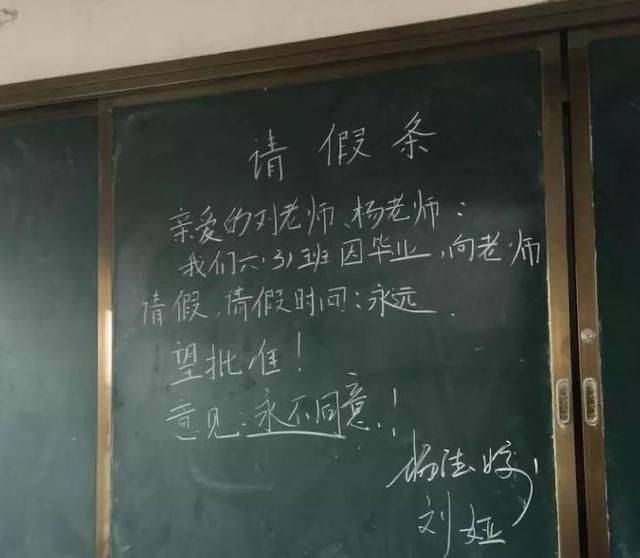 请假条
亲爱的刘老师、杨老师:
我们六(3)班因毕业,向老师
请假,请假时间:永远.
望批准!
意见:永不同意!
刘娅